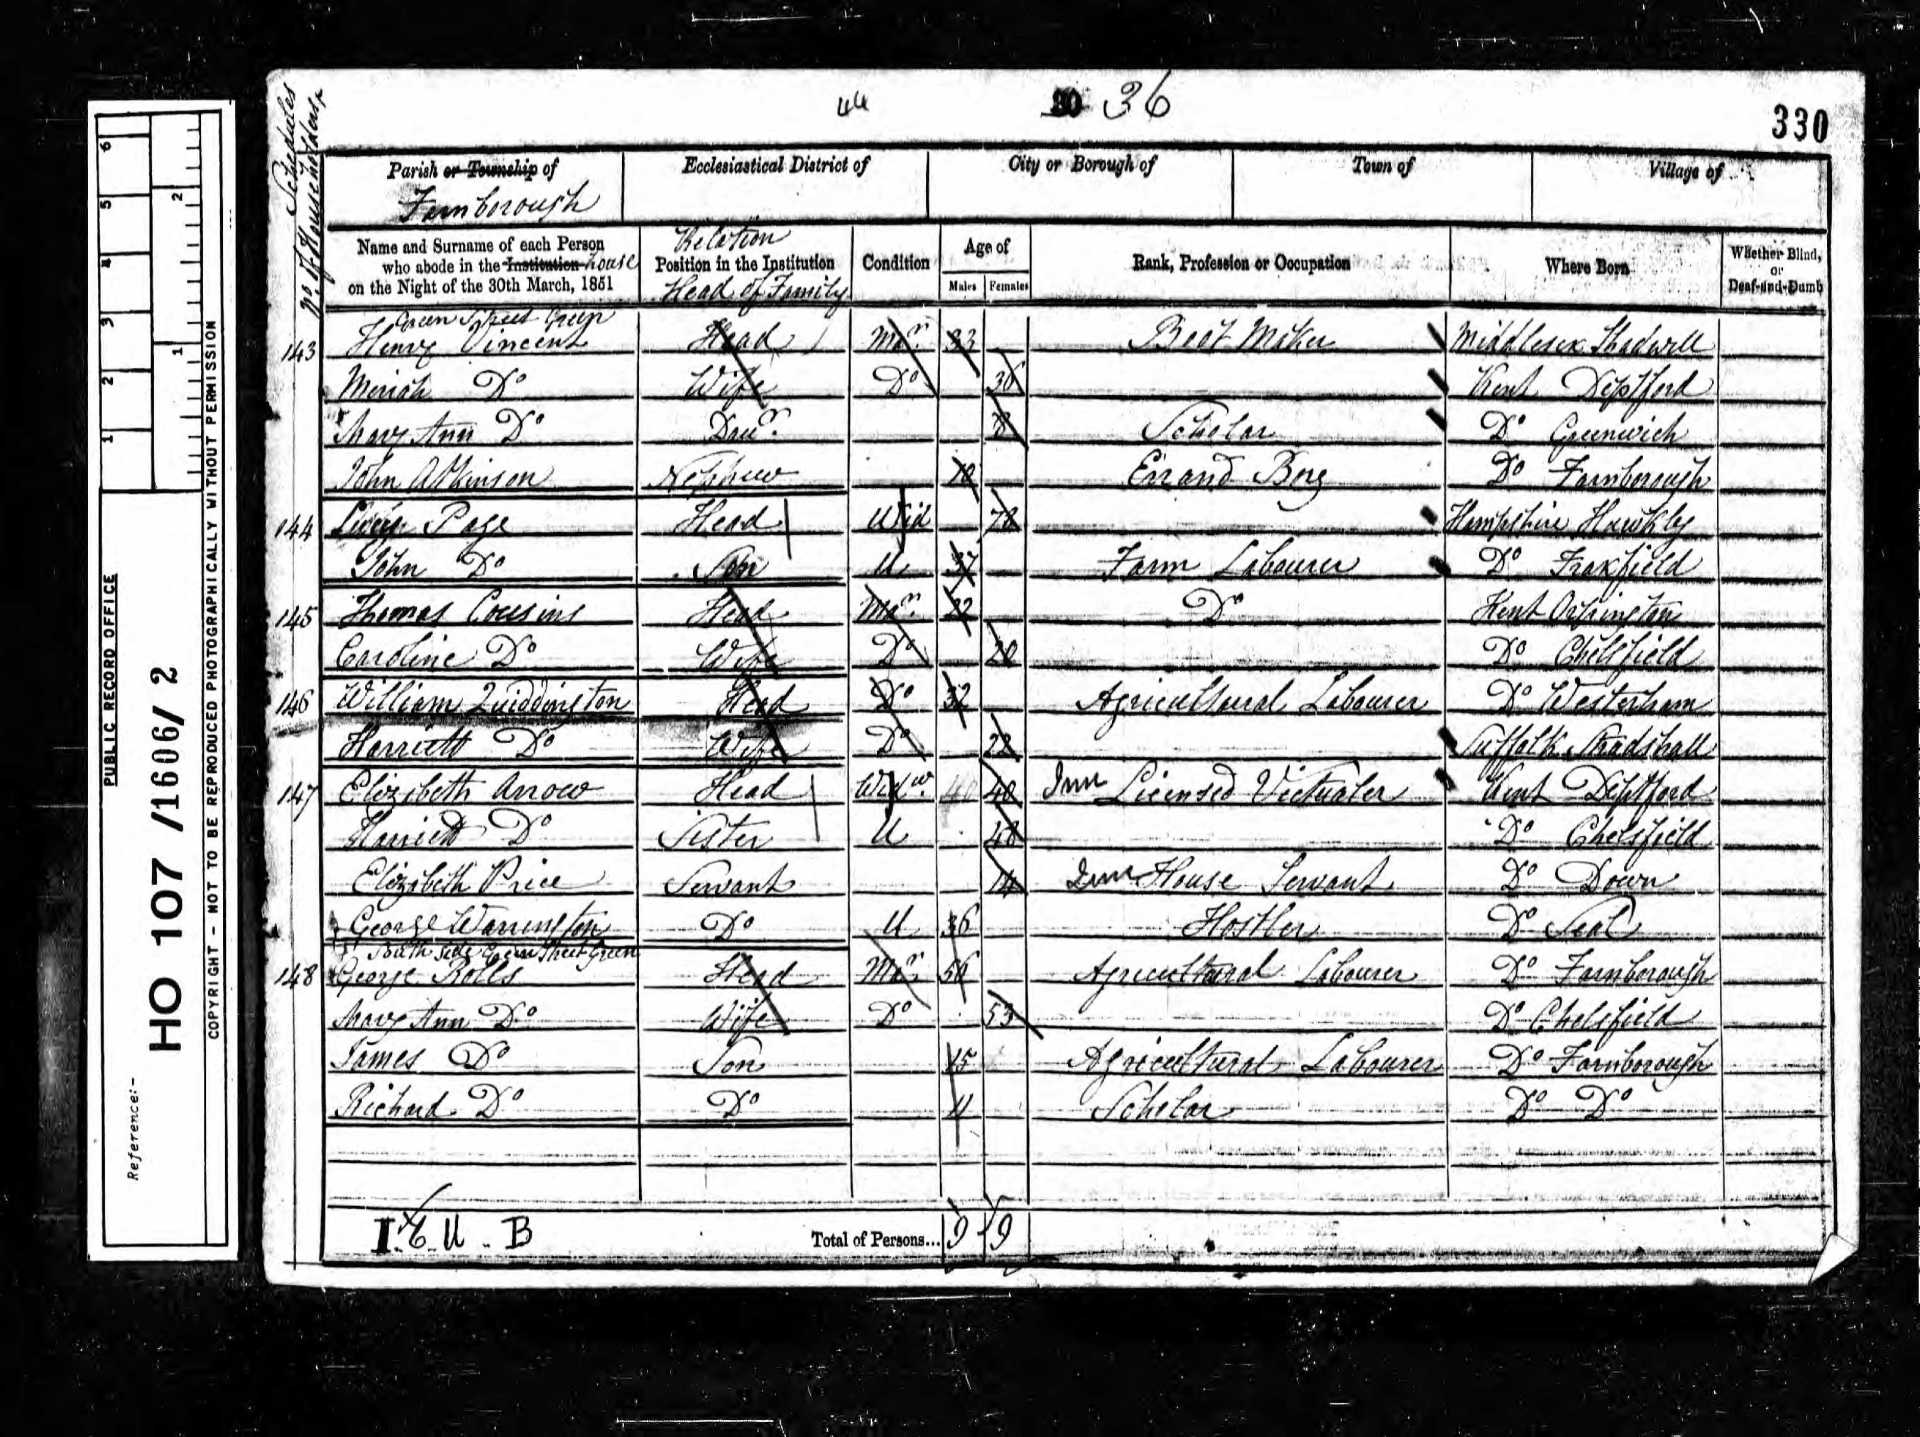 44 30 36
330
No. of Householders Schedules
Parish or Township of
Farnborough
Ecclesiastical District of
City or Borough of
Town of
Village of
Name and Surname of each Person
who abode in the Institution house
on the Night of the 30th March, 1851
Relation
Position in the Institution
Head of Family
Condition
Age of
Males Females
Rank, Profession or Occupation
Where Born
Whether Blind,
or
Deaf-and-Dumb
Green Street Green
143 Henry Vincent Head Mar. 33 Boot Maker Middlesex Shadwell
Do Wife Do 36 Kent Deptford
Mary Ann Do Dau. Scholar Do Greenwich
John Atkinson Nephew 10 Errand Boy Do Farnborough
144 Page Head Wid 78 Hampshire Hawkly
John Do Son U 37 Farm Labourer Do Froxfield
145 Thomas Cousins Head Mar. 22 Do Kent Orpington
Caroline Do Wife Do 20 Do Chelsfield
146 William Quiddington Head Do 32 Agricultural Labourer Do Westerham
Harriett Do Wife Do 22 Suffolk
147 Elizabeth Arrow Head Widw. 40 Inn Licensed Victualer Kent Deptford
Harriett Do Sister U 48 Do Chelsfield
Elizabeth Price Servant 14 Inn House Servant Do Down
George Warrington Do U 36 Hostler Do Seal
South Side Green Street Green
148 George Rolls Head Mar. 56 Agricultural Labourer Do Farnborough
Mary Ann Do Wife Do 53 Do Chelsfield
James Do Son 15 Agricultural Labourer Do Farnborough
Richard Do Do 11 Scholar Do Do
I. U. B
Total of Persons... 9 9
6 5 4 3 2 1
2 1
PUBLIC RECORD OFFICE
Reference:-
HO 107 /1606/ 2
COPYRIGHT - NOT TO BE REPRODUCED PHOTOGRAPHICALLY WITHOUT PERMISSION